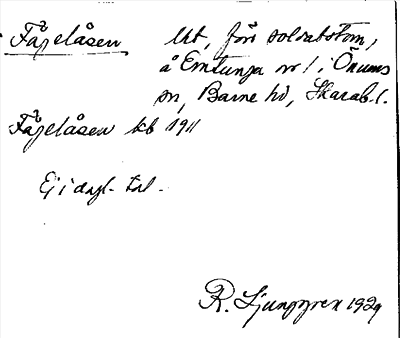 Fågelåsen Ut, förr soldattorp,
å Emtunga nr 1 i Önums
sn, Barne hd, Skarab. l.
Fågelåsen kb 1911
Ej i dagl. tal.
R. Ljunggren 1929